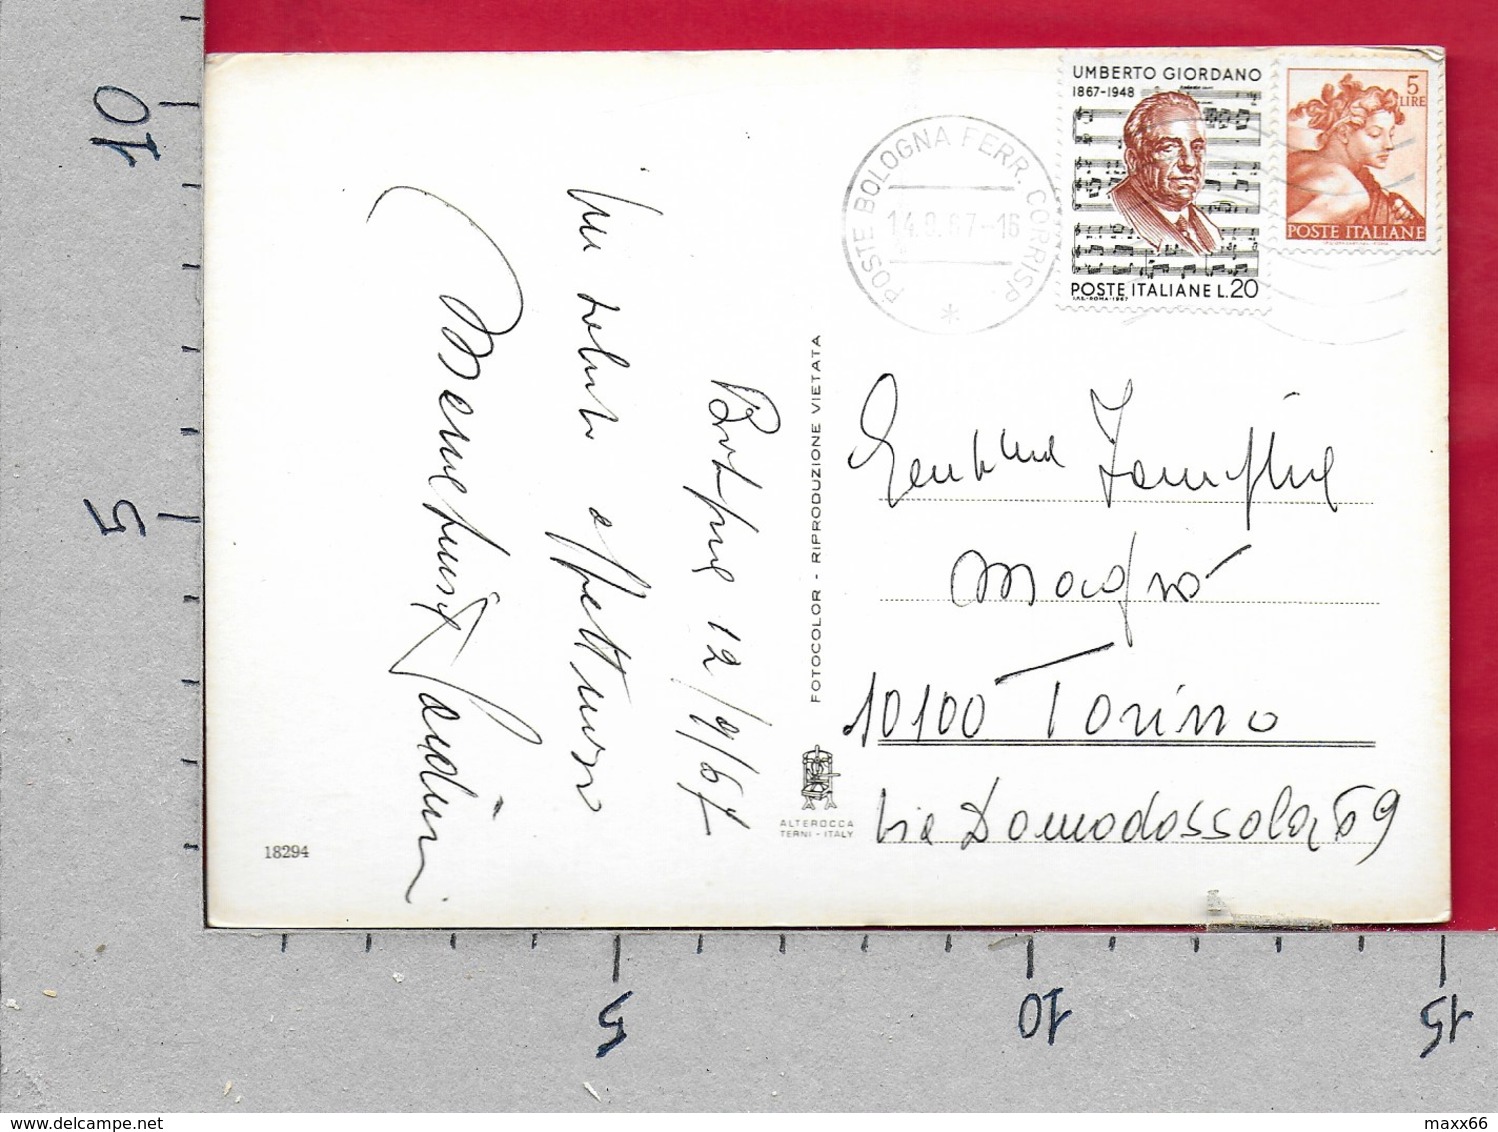 10
5
5
10
15
UMBERTO GIORDANO
1867-1948
POSTE ITALIANE L.20
I.P.S.-ROMA-1967
5
LIRE
POSTE ITALIANE
POSTE BOLOGNA FERR. CORRISP.
14.9.67-16
*
12/9/67
Un saluto affettuoso
FOTOCOLOR - RIPRODUZIONE VIETATA
ALTEROCCA
TERNI - ITALY
18294
Gentilma Famiglia
10100 Torino
Via Domodossola 69
maxx66
delcampe.net